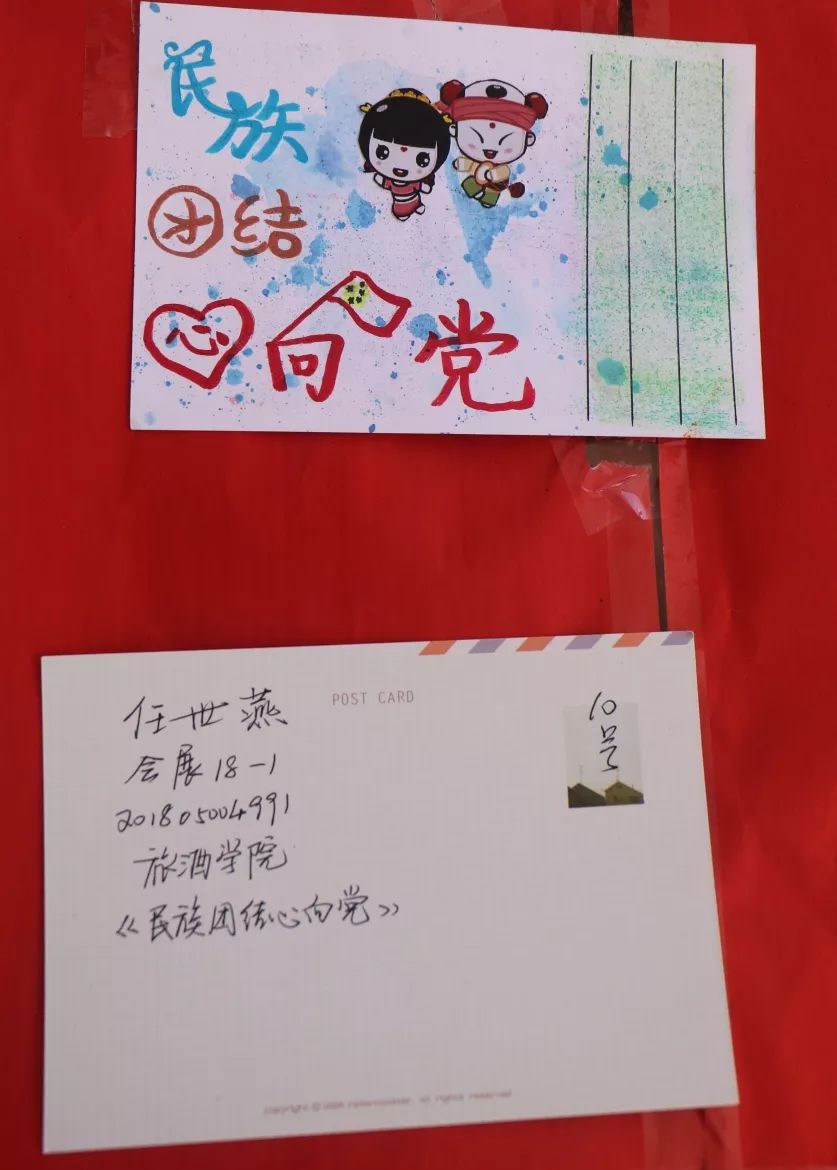 民族
团结
心向党
POST CARD
任世燕
会展18-1
201805004991
旅酒学院
《民族团结心向党》
10号